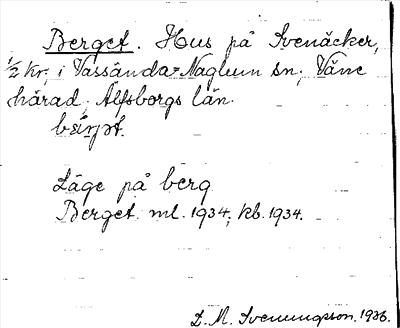 Berget. Hus på Svenäcker,
1/2 kr, i Vassända-Naglum sn, Väne
härad, Älfsborgs län.
Läge på berg.
Berget ml. 1934, kb. 1934.
L. M. Svenungsson. 1936.